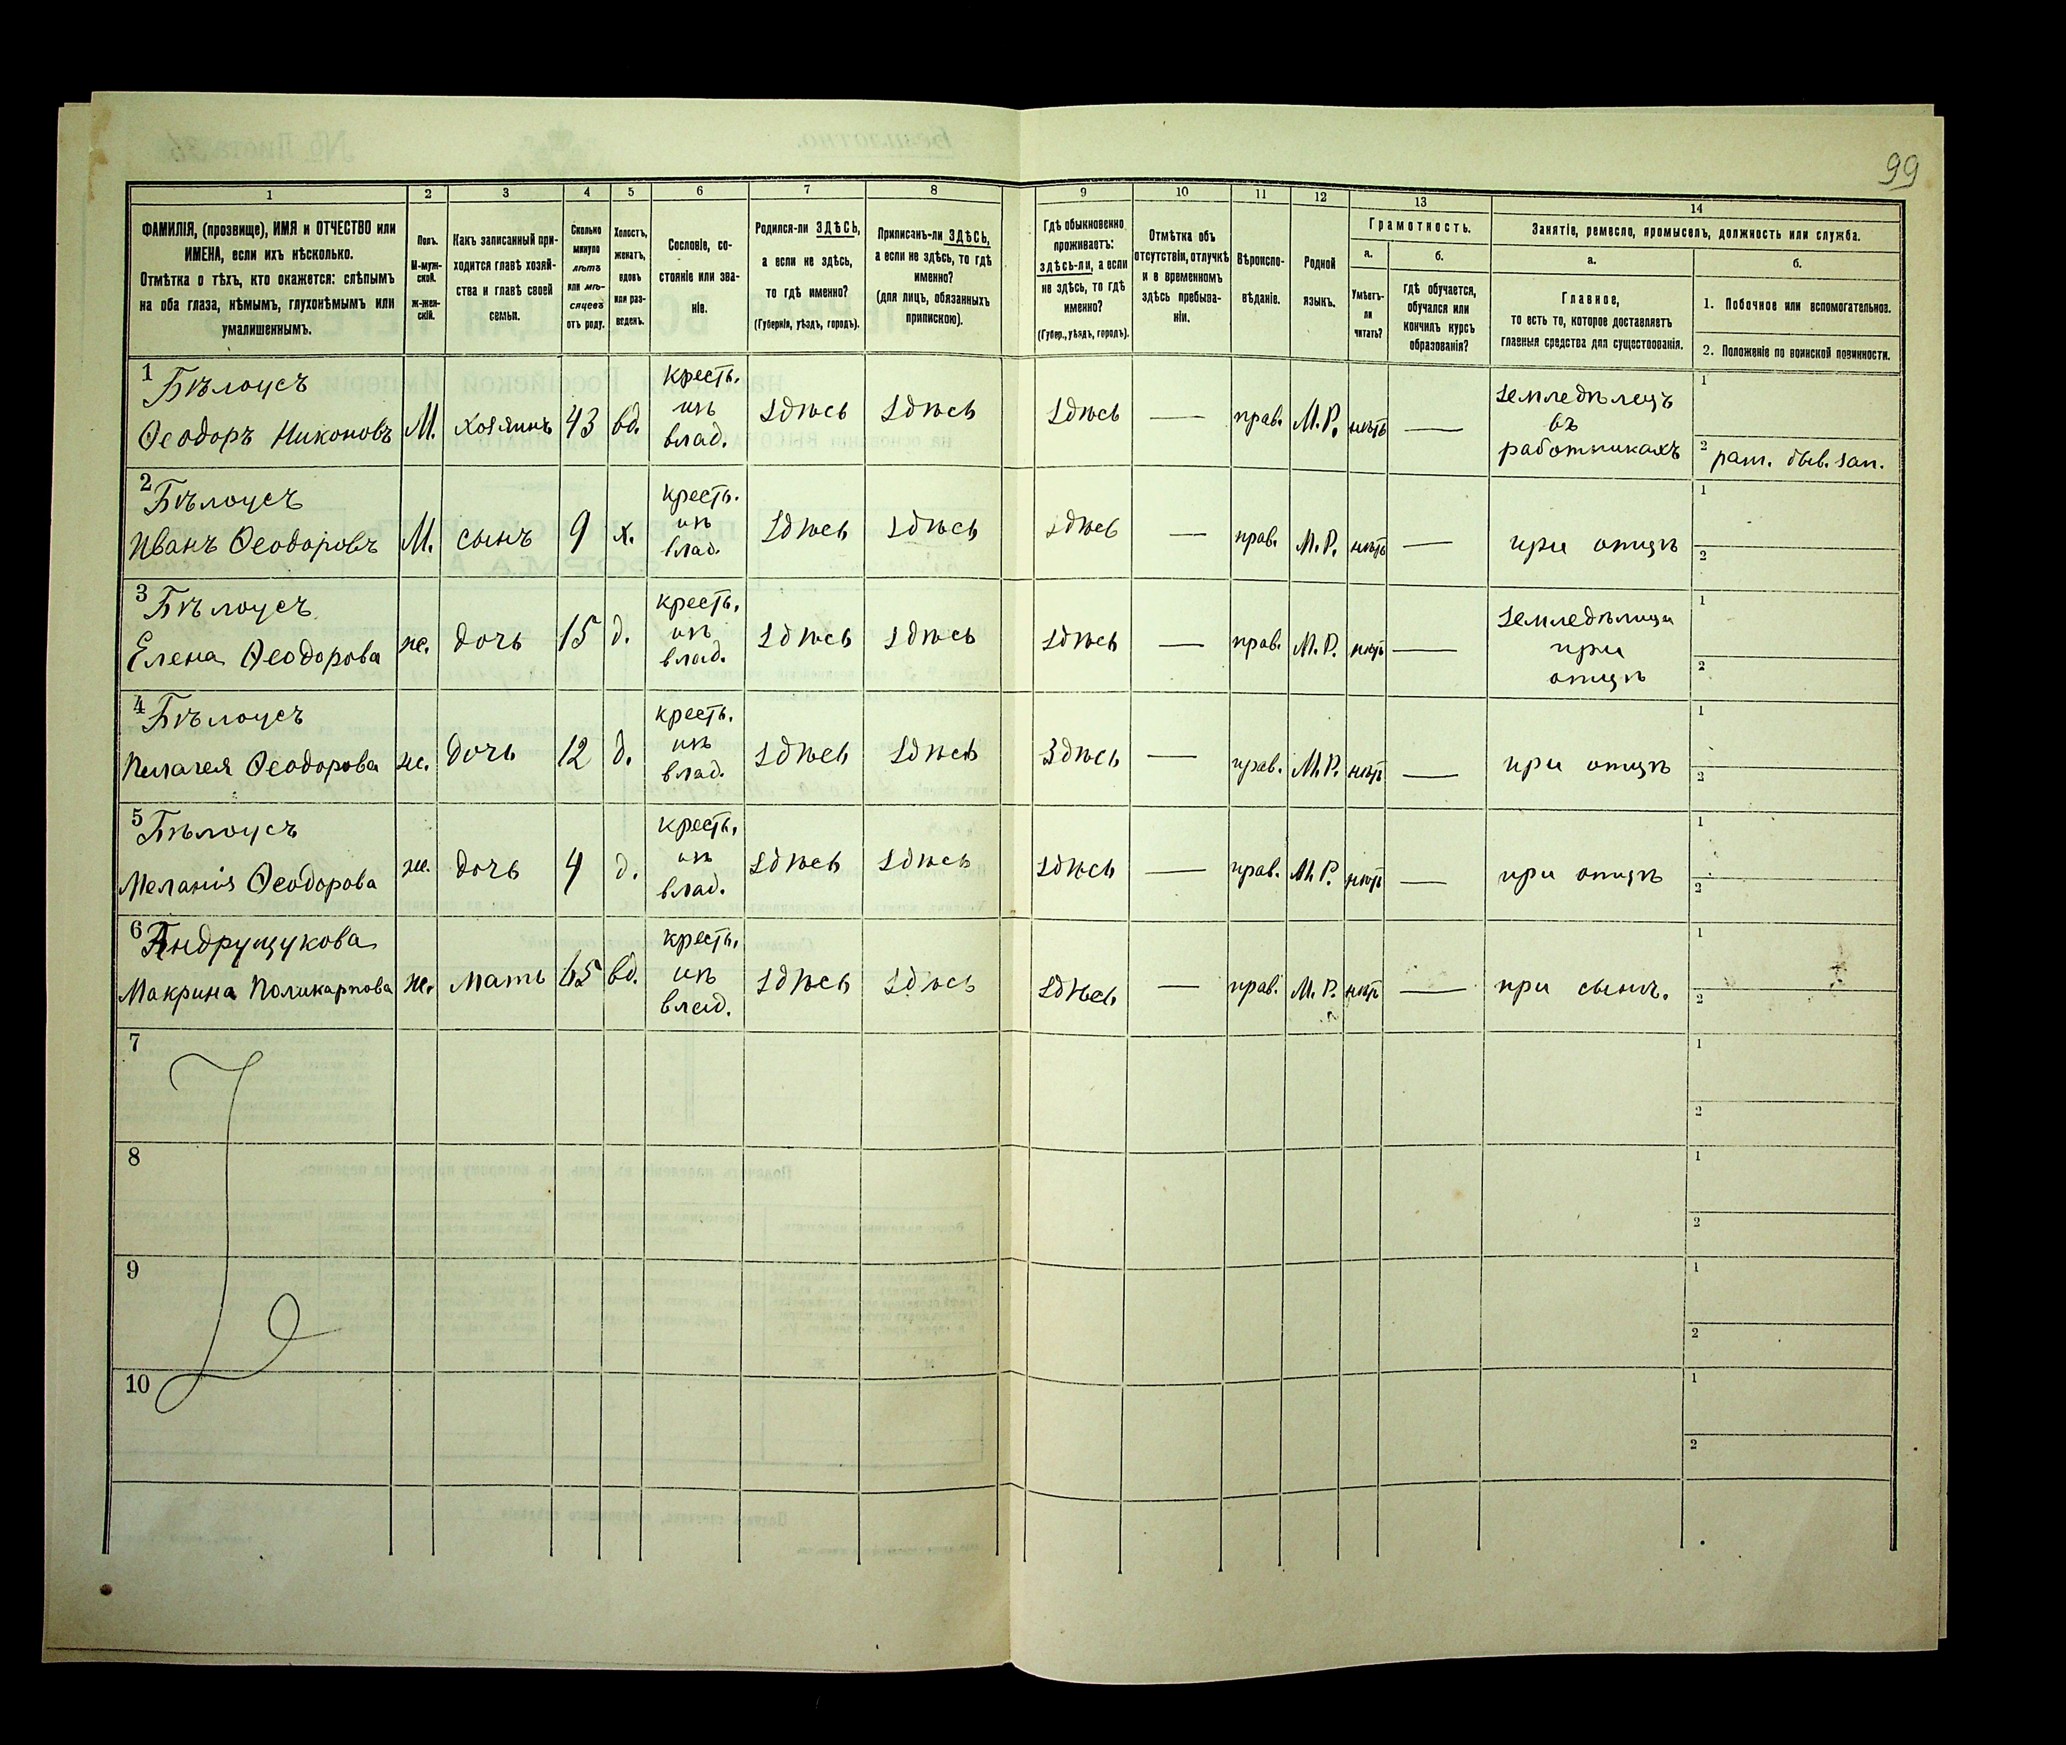 99
1 2 3 4 5 6 7 8 9 10 11 12 13 14
ФАМИЛІЯ, (прозвище), ИМЯ и ОТЧЕСТВО или
ИМЕНА, если ихъ нѣсколько.
Отмѣтка о тѣхъ, кто окажется: слѣпымъ
на оба глаза, нѣмымъ, глухонѣмымъ или
умалишеннымъ.
Полъ.
М-муж-
ской.
ж-жен-
скій.
Какъ записанный при-
ходится главѣ хозяй-
ства и главѣ своей
семьи.
Сколько
минуло
лѣтъ
или мѣ-
сяцевъ
отъ роду.
Холостъ,
женатъ,
вдовъ
или раз-
веденъ.
Сословіе, со-
стояніе или зва-
ніе.
Родился-ли ЗДѢСЬ,
а если не здѣсь,
то гдѣ именно?
(Губернія, уѣздъ, городъ).
Приписанъ-ли ЗДѢСЬ,
а если не здѣсь, то гдѣ
именно?
(для лицъ, обязанныхъ
припискою).
Гдѣ обыкновенно
проживаетъ:
здѣсь-ли, а если
не здѣсь, то гдѣ
именно?
(Губер., уѣздъ, городъ).
Отмѣтка объ
отсутствіи, отлучкѣ
и о временномъ
здѣсь пребыва-
ніи.
Вѣроиспо-
вѣданіе.
Родной
языкъ.
Грамотность.
а.
Умѣетъ-
ли
читать?
б.
гдѣ обучается,
обучался или
кончилъ курсъ
образованія?
Занятіе, ремесло, промыселъ, должность или служба.
а.
Главное,
то есть то, которое доставляетъ
главныя средства для существованія.
б.
1. Побочное или вспомогательное.
2. Положеніе по воинской повинности.
1 Бѣлоусъ
Ѳеодоръ Никоновъ
М.
хозяинъ
43
вд.
кресть.
изъ
влад.
здѣсь
здѣсь
здѣсь
—
прав.
М.Р.
нѣтъ
—
земледѣлецъ
въ
работникахъ
1
2 рат. быв. зап.
2 Бѣлоусъ
Иванъ Ѳеодоровъ
М.
сынъ
9
х.
кресть.
изъ
влад.
здѣсь
здѣсь
здѣсь
—
прав.
М.Р.
нѣтъ
—
при отцѣ
1
2
3 Бѣлоусъ
Елена Ѳеодорова
ж.
дочь
15
д.
кресть.
изъ
влад.
здѣсь
здѣсь
здѣсь
—
прав.
М.Р.
нѣтъ
—
земледѣлица
при
отцѣ
1
2
4 Бѣлоусъ
Пелагея Ѳеодорова
ж.
дочь
12
д.
кресть.
изъ
влад.
здѣсь
здѣсь
здѣсь
—
прав.
М.Р.
нѣтъ
—
при отцѣ
1
2
5 Бѣлоусъ
Меланія Ѳеодорова
ж.
дочь
4
д.
кресть.
изъ
влад.
здѣсь
здѣсь
здѣсь
—
прав.
М.Р.
нѣтъ
—
при отцѣ
1
2
6 Андрущукова
Макрина Поликарпова
ж.
мать
65
вд.
кресть.
изъ
влад.
здѣсь
здѣсь
здѣсь
—
прав.
М.Р.
нѣтъ
—
при сынѣ.
1
2
7
1
2
8
1
2
9
1
2
10
1
2